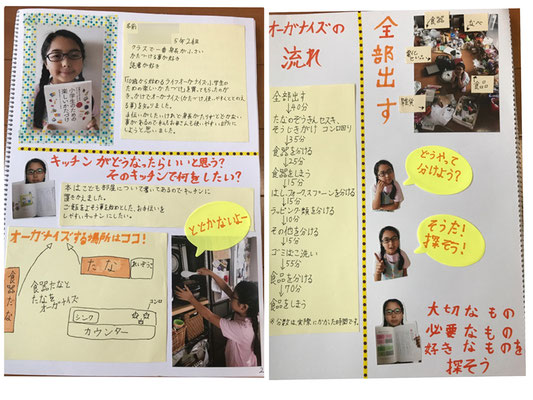 5年2組
クラスで一番身長が小さい
かたづける事が好き
読書が好き
小学生のための
楽しいかたづけ
キッチンがどうなったらいいと思う？
そのキッチンで何をしたい？
本はこども部屋について書いてあるのでキッチンに
置きかえました。
しやすいキッチンにしたい。
オーガナイズする場所はココ！
とどかないよ〜
たな
れいぞうこ
食器だな
食器だなと
たなを
オーガナイズ
コンロ
シンク
カウンター
オーガナイズの
流れ
全部出す
↓40分
たなのぞうきん
そうじきかけ コンロ回り
↓35分
食器を分ける
↓25分
食器をしまう
↓15分
はし、フォーク、スプーンを分ける
↓15分
ラッピング類を分ける
↓10分
その他を分ける
↓15分
ゴミはこ洗い
↓55分
食品を分ける
↓70分
食品をしまう
※分数は実際にかかった時間です。
全部出す
食器
なべ
食品
雑貨
どうやって
分けよう？
そうだ！
探そう！
大切なもの
必要なもの
好きなものを
探そう